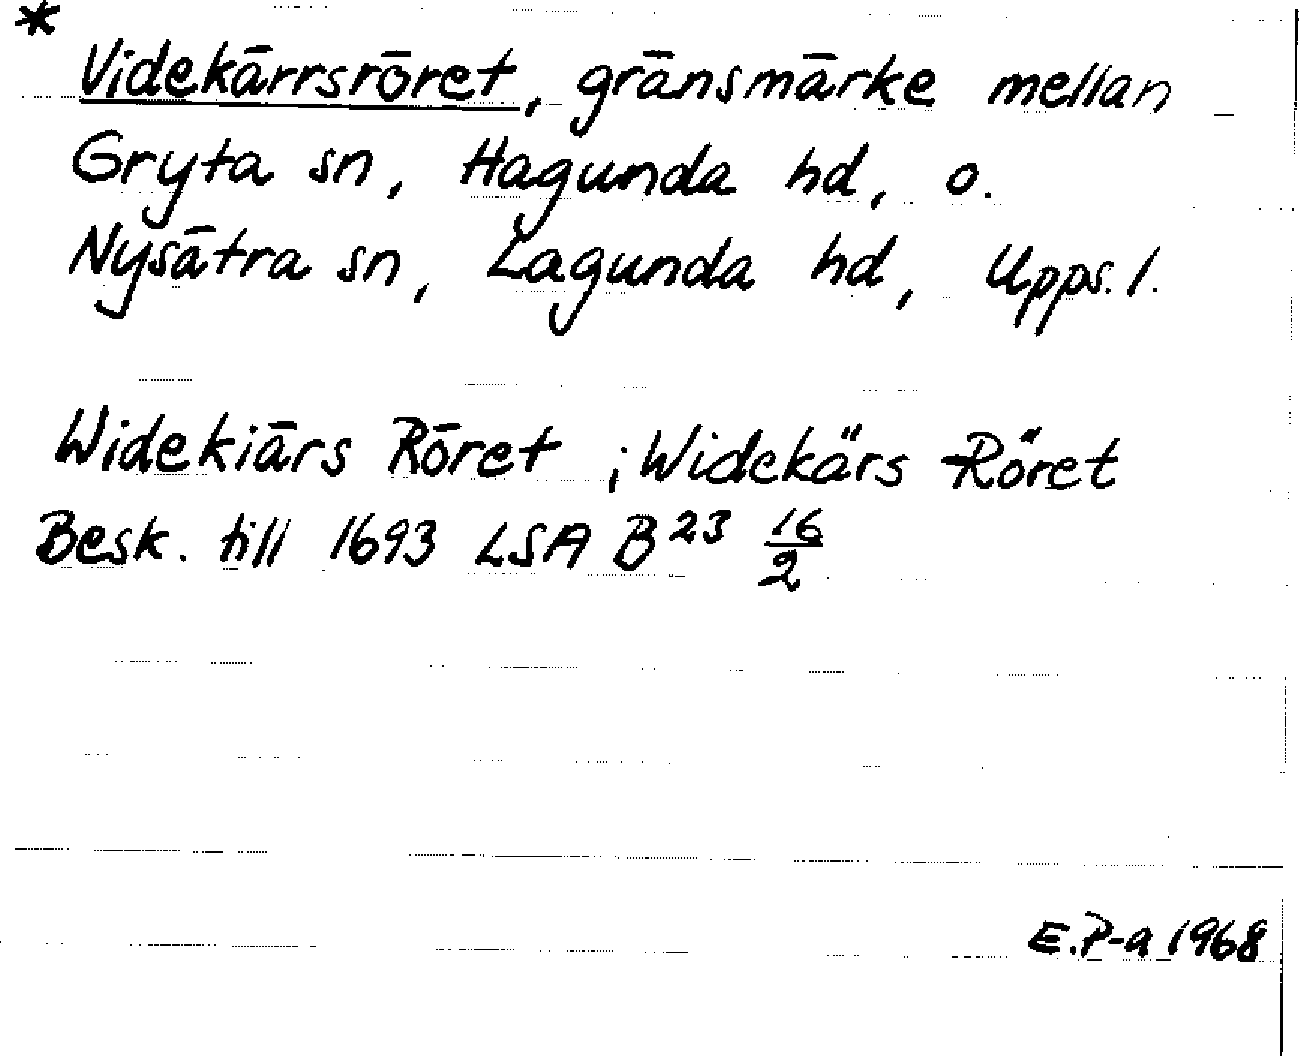 *
Videkärrsröret, gränsmärke mellan
Gryta sn, Hagunda hd, o.
Nysätra sn, Lagunda hd, Upps. l.
Widekiärs Röret ; Widekärs Röret
Besk. till 1693 LSA B²³ 16/2
E.P-a 1968